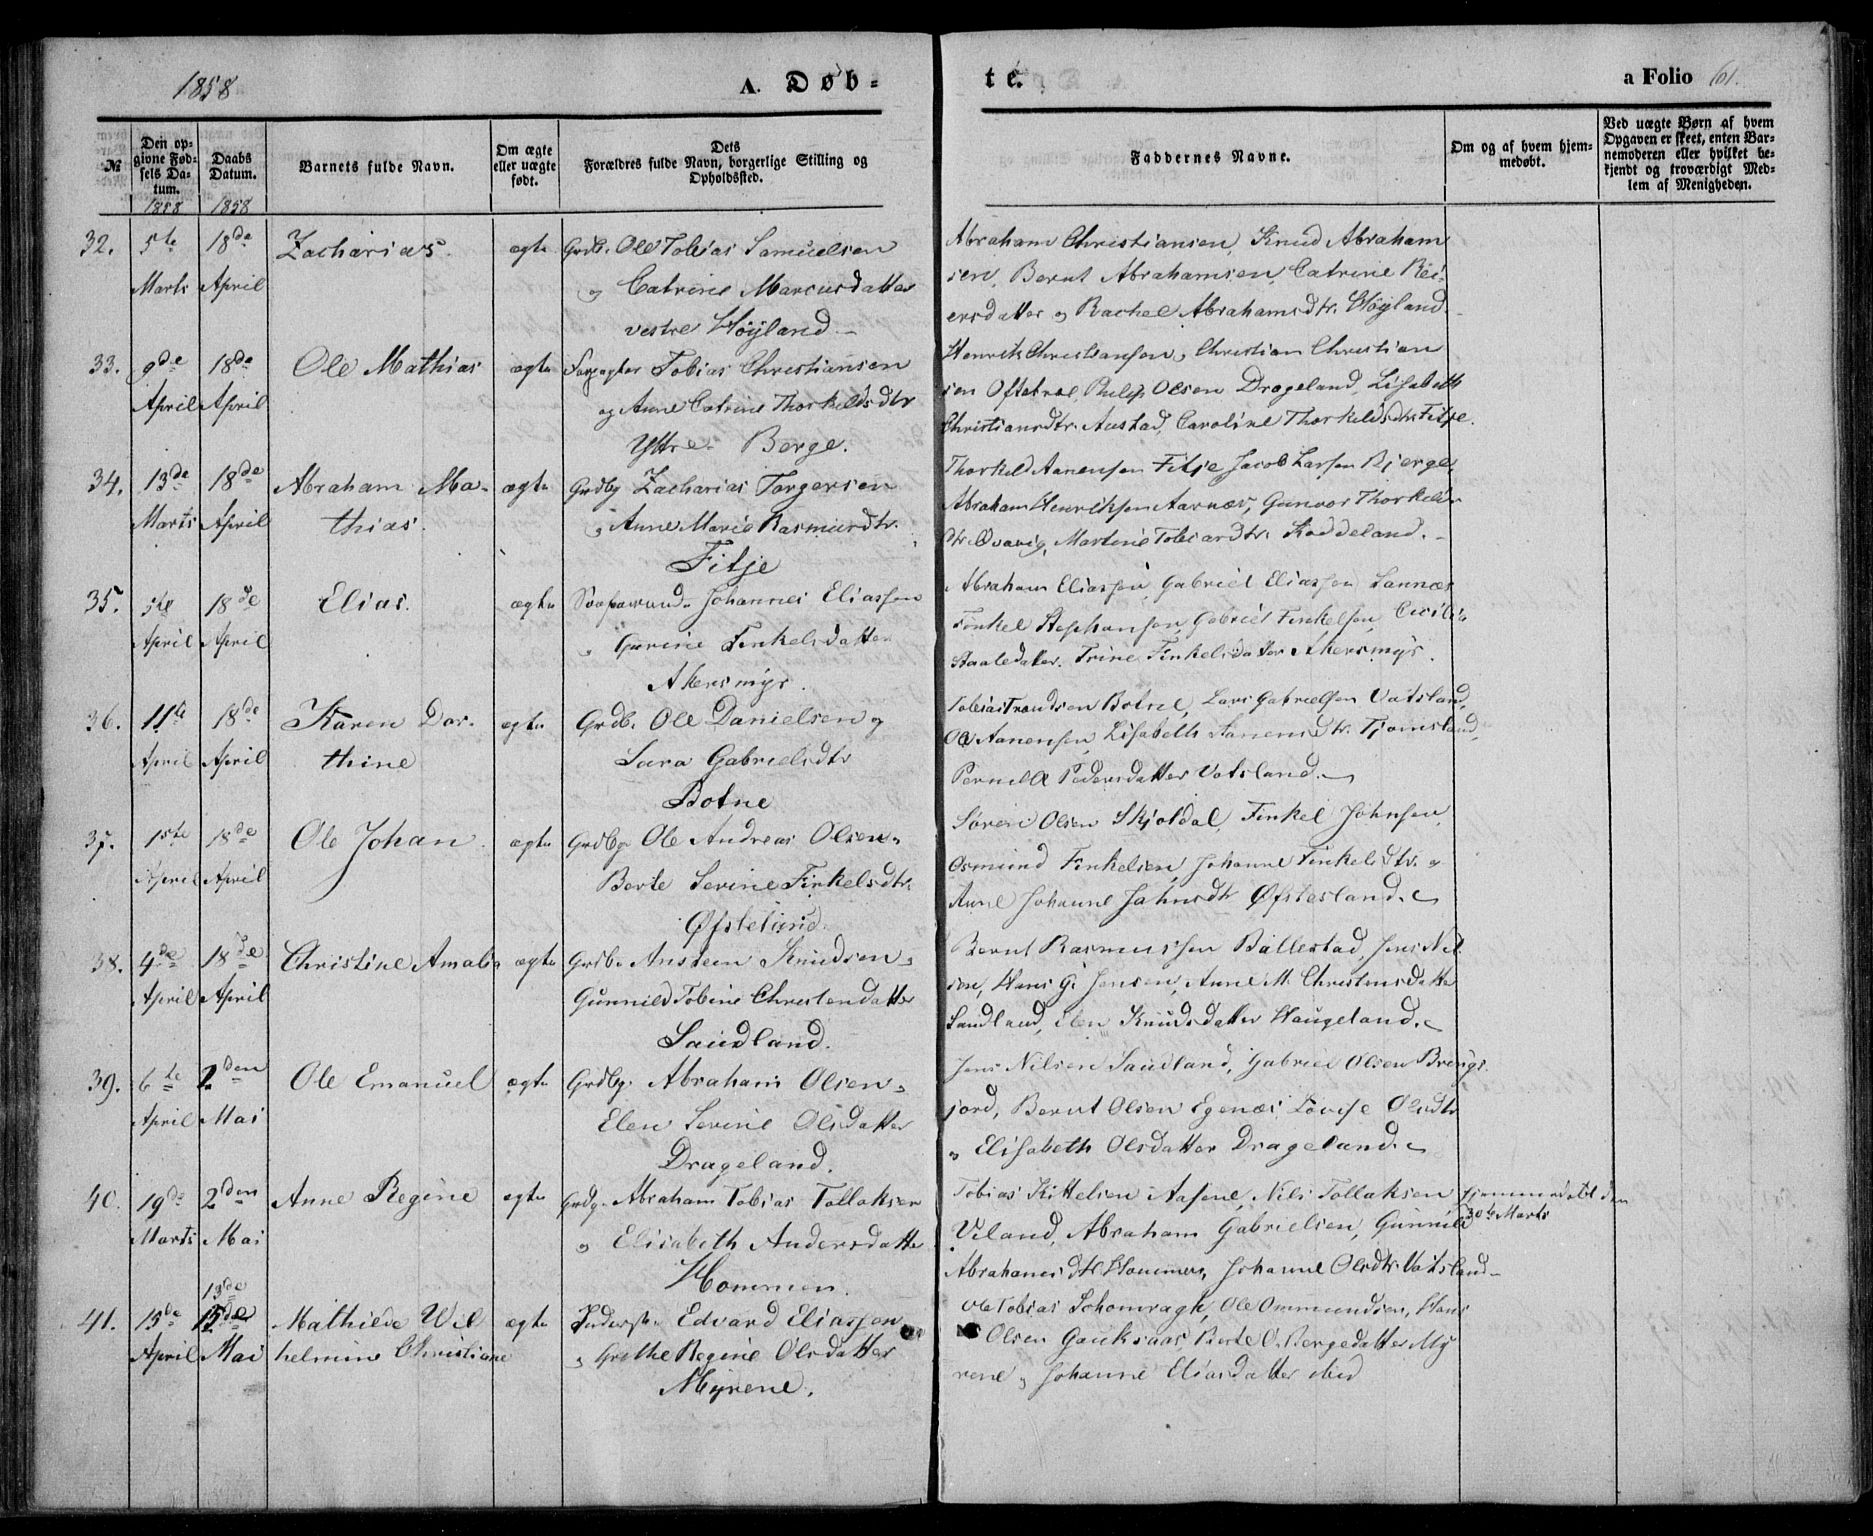 1858
A. Døb-
te.
a Folio 61.
№
Den op-
givne Fød-
sels Da-
tum.
Daabs
Datum.
Barnets fulde Navn.
Om ægte
eller uægte
født.
Dets
Forældres fulde Navn, borgerlige Stilling og
Opholdssted.
Faddernes Navne.
Om og af hvem hjem-
medøbt.
Ved uægte Børn af hvem
Opgaven er skeet, enten Bar-
nemoderen eller hvilket be-
kjendt og troværdigt Med-
lem af Menigheden.
1858 1858
32. 5te 18de Zacharias. ægte Grdb. Ole Tobias Samuelsen
Marts April og Catrine Marcusdatter
vestre Høyland
Abraham Christiansen, Knud Abraham
sen, Bernt Abrahamsen, Catrine Rei-
ersdatter og Rachel Abrahamsdtr. Høyland.
33. 9de 18de Ole Mathias ægte Tobias Christiansen
April April og Anne Catrine Thorkeldsdtr
Yttre Berge.
Henrik Christiansen, Christian Christian
sen Oftebroe, Philip Olsen Drageland, Lisabeth
Christiansdtr. Austad, Caroline Thorkeldsdtr Fitje.
34. 13de 18de Abraham Ma- ægte Grdbg Zacharias Torgersen
Marts April thias. og Anne Marie Rasmusdtr.
Fitje
Thorkeld Aanensen Fitje Jacob Larsen Bjerge,
Abraham Henriksen Aarnæs, Gunvor Thorkelds
dtr. Qvavig, Martine Tobiasdtr. Koddeland.
35. 5te 18de Elias. ægte Johannes Eliassen
April April Gurine Finkelsdatter
Akersmyr.
Abraham Eliassen, Gabriel Eliassen Sannæs
Finkel Stephansen, Gabriel Finkelsen, Cecilie
Staalesdatter. Trine Finkelsdatter Akersmyr.
36. 11te 18de Karen Dor- ægte Grdb. Ole Danielsen og
April April thine Sara Gabrielsdtr
Botne
Tobias Trondsen Botne, Lars Gabrielsen Vatsland,
Ole Aanensen, Lisabeth dtr. Tjomsland,
Pernille Pedersdatter Vatsland.
37. 1ste 18de Ole Johan. ægte Grdbg Ole Andreas Olsen og
April April Berte Serine Finkelsdtr.
Øfstelund.
Søren Olsen Skjoldal, Finkel Johnsen,
Osmund Finkelsen, Johanne Finkelsdtr. og
Anne Johanne Johnsdtr Øfstesland.
38. 4de 18de Christine Amalia ægte Grdb. Ansteen Knudsen og
April April Gunnild Tobine Christensdatter
Saudland.
Bernt Rasmussen Ballestad, Jens Nil
sen, Hans G. Jensen, Anne M. Christensdatter
Saudland, Elen Knudsdatter Haugeland.
39. 6te 2den Ole Emanuel ægte Grdbg. Abraham Olsen og
April Mai Elen Serine Olsdatter
Drageland.
Jens Nilsen Saudland, Gabriel Olsen Brings
jord, Bernt Olsen Egenæs, Lovise Olsdtr
og Elisabeth Olsdatter Drageland.
40. 19de 2den Anne Regine ægte Grdg. Abraham Tobias Tollaksen
Marts Mai og Elisabeth Andersdatter
Hommen.
Tobias Kittelsen Aasene, Nils Tollaksen
Veland, Abraham Gabrielsen, Gunnild
Abrahamsdtr Hommen, Johanne Olsdtr Vatsland
Hjemmedøbt den
30te Marts
13de
41. 15de 15de Mathilde Wil ægte Inderst. Edvard Eliassen
April Mai helmine Christiane og Grethe Regine Olsdatter
Myrene.
Ole Tobias Schomragh, Ole Ommundsen, Hans
Olsen Gauksaas, Berte O. Bergesdatter My
rene og Johanne Eliasdatter ibid